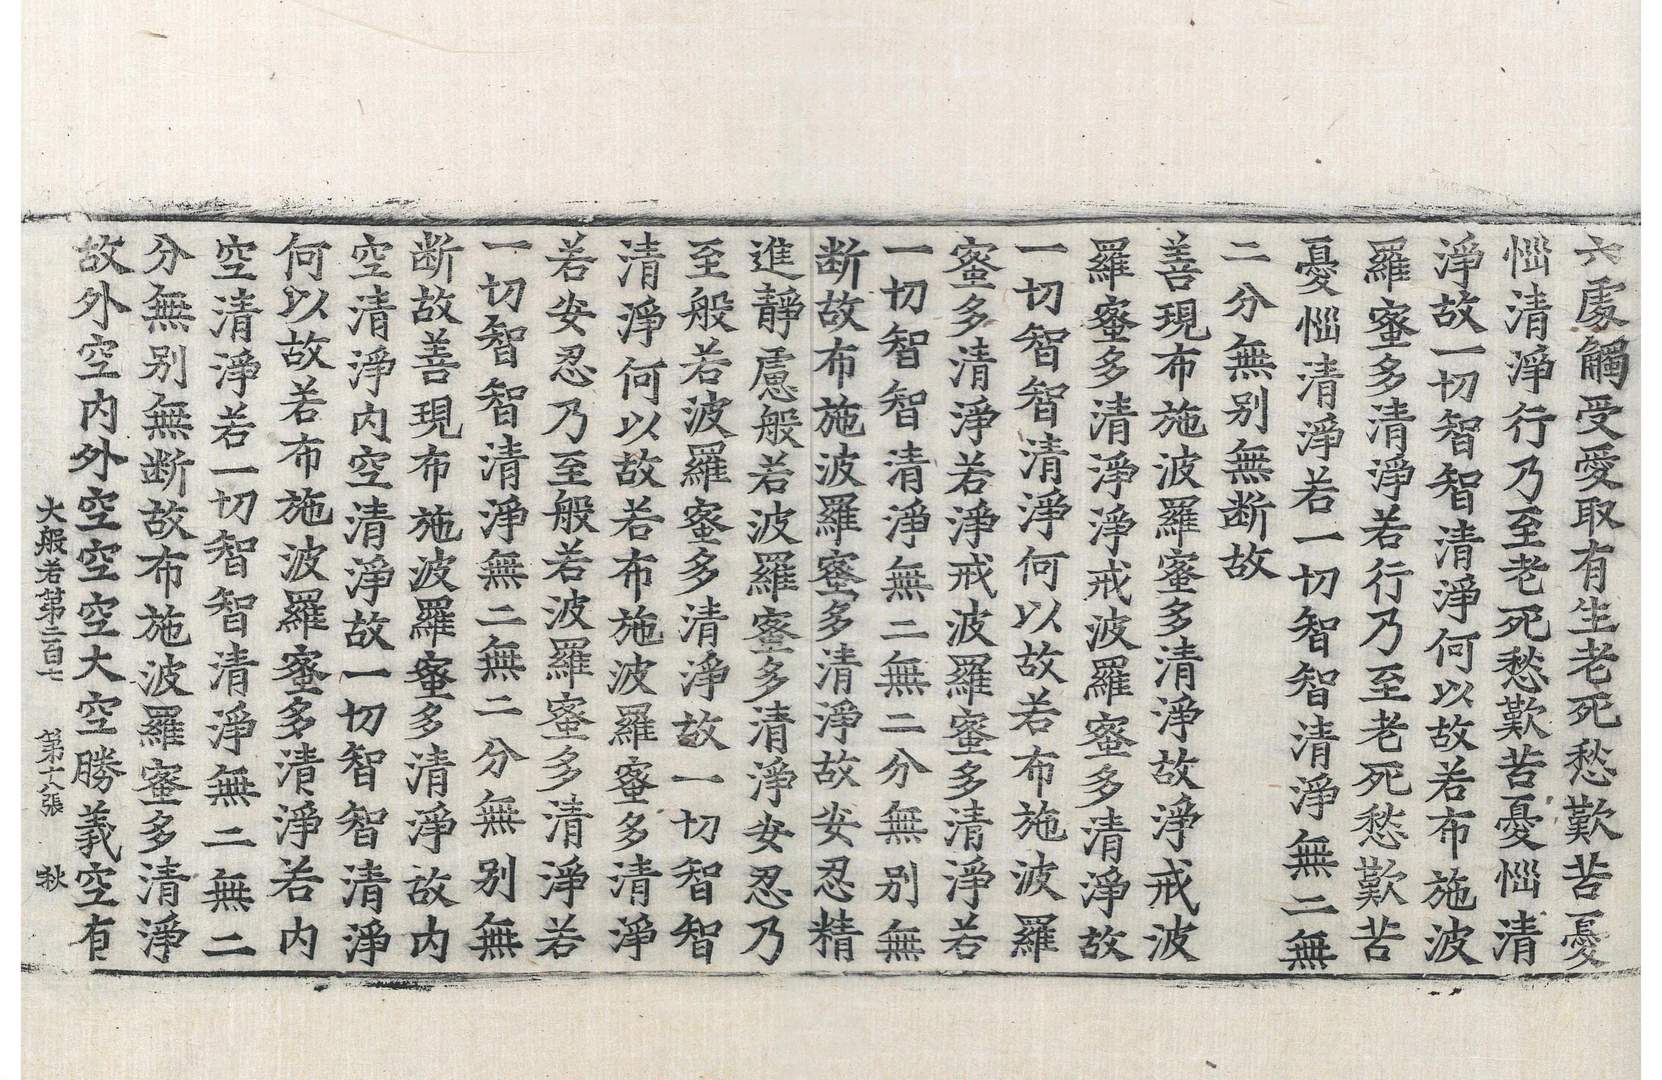 六處觸受愛取有生老死愁歎苦憂
惱清淨行乃至老死愁歎苦憂惱清
淨故一切智智清淨何以故若布施波
羅蜜多清淨若行乃至老死愁歎苦
憂惱清淨若一切智智清淨無二無
二分無别無断故
善現布施波羅蜜多清淨故淨戒波
羅蜜多清淨淨戒波羅蜜多清淨故
一切智智清淨何以故若布施波羅
蜜多清淨若淨戒波羅蜜多清淨若
一切智智清淨無二無二分無别無
断故布施波羅蜜多清淨故安忍精
進靜慮般若波羅蜜多清淨安忍乃
至般若波羅蜜多清淨故一切智智
清淨何以故若布施波羅蜜多清淨
若安忍乃至般若波羅蜜多清淨若
一切智智清淨無二無二分無别無
断故善現布施波羅蜜多清淨故内
空清淨内空清淨故一切智智清淨
何以故若布施波羅蜜多清淨若内
空清淨若一切智智清淨無二無二
分無别無断故布施波羅蜜多清淨
故外空内外空空空大空勝義空有
大般若第二百七 第十八張 秋